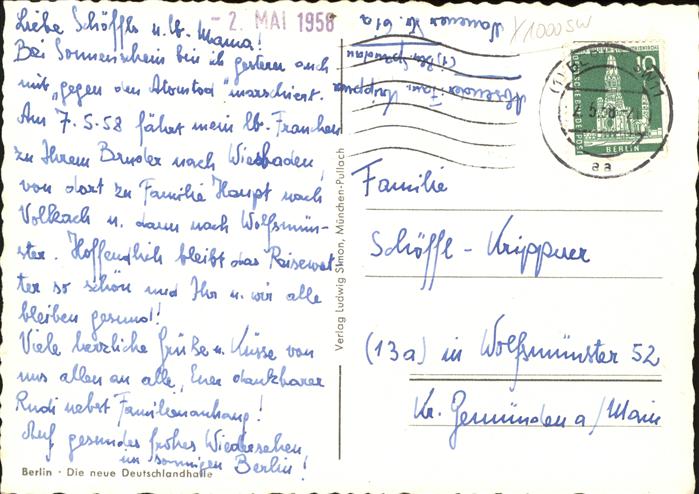 - 2. MAI 1958
Liebe Schöffls u. lb. Mama!
Bei Sonnenschein bin ich gestern auch
mit "gegen den Atomtod" marschiert.
Am 7.5.58 fährt mein lb. Frauchen
zu Ihrem Bruder nach Wiesbaden,
von dort zu Familie Haupt nach
Volkach u. dann nach Wolfsmün-
ster. Hoffendlich bleibt das Reisewet-
ter so schön und Ihr u. wir alle
bleiben gesund!
Viele herzliche Grüße u. Küsse von
uns allen an alle, Euer dankbarer
Rudi nebst Familienanhang!
Auf gesundes frohes Wiedersehen
im sonnigen Berlin!
Berlin · Die neue Deutschlandhalle
Verlag Ludwig Simon, München-Pullach
Absender: Fam. Krippner
(1) Bln. Spandau
Str. 61a
Y1000SW
10
DEUTSCHE BUNDESPOST
BERLIN
aa
Familie
Schöffl - Krippner
(13a) in Wolfsmünster 52
Kr. Gemünden a/Main